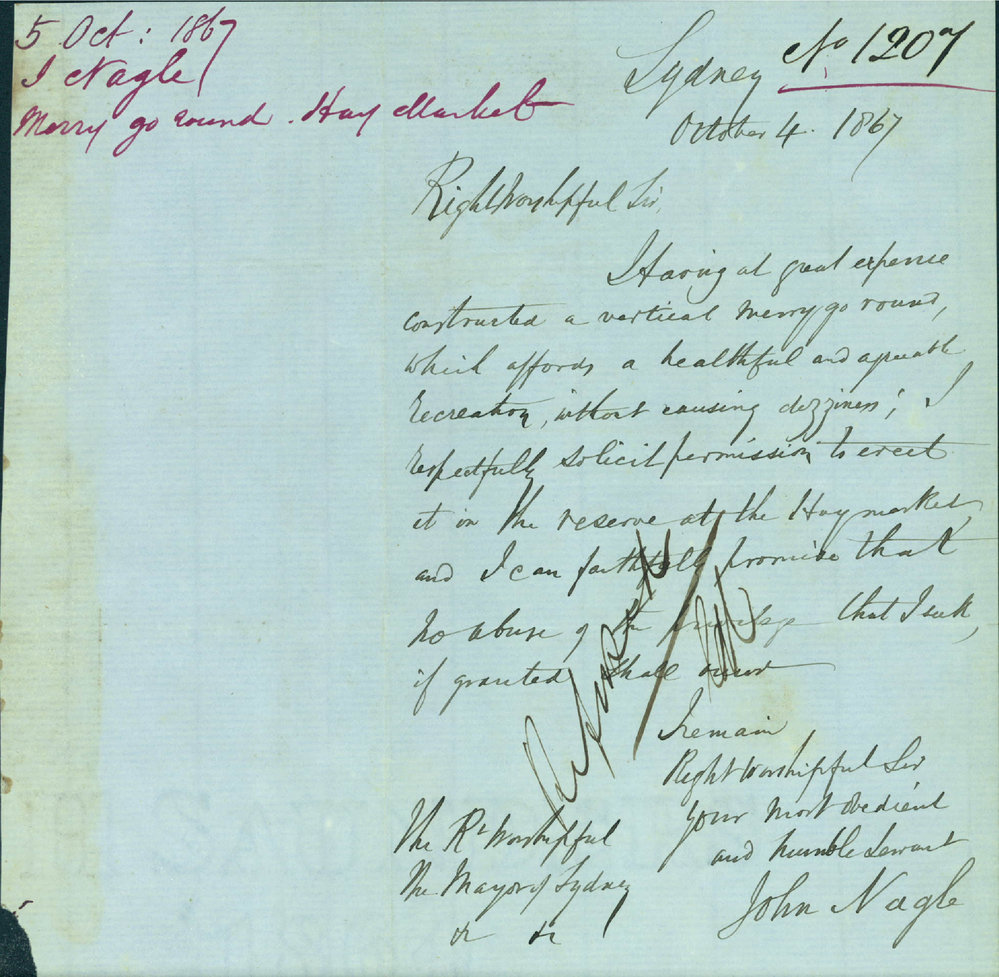 5 Oct: 1867
J Nagle
Merry go round. Hay Market
No 1207
Sydney
October 4. 1867
Right Worshipful Sir,
Having at great expense
constructed a vertical merry go round,
which affords a healthful and agreeable
recreation, without causing dizziness; I
respectfully solicit permission to erect
it in the reserve at the Haymarket,
and I can faithfully promise that
no abuse of the privilege that I seek,
if granted shall occur
I remain
Right Worshipful Sir
your most obedient
and humble Servant
John Nagle
The Rt Worshipful
The Mayor of Sydney
&c &c